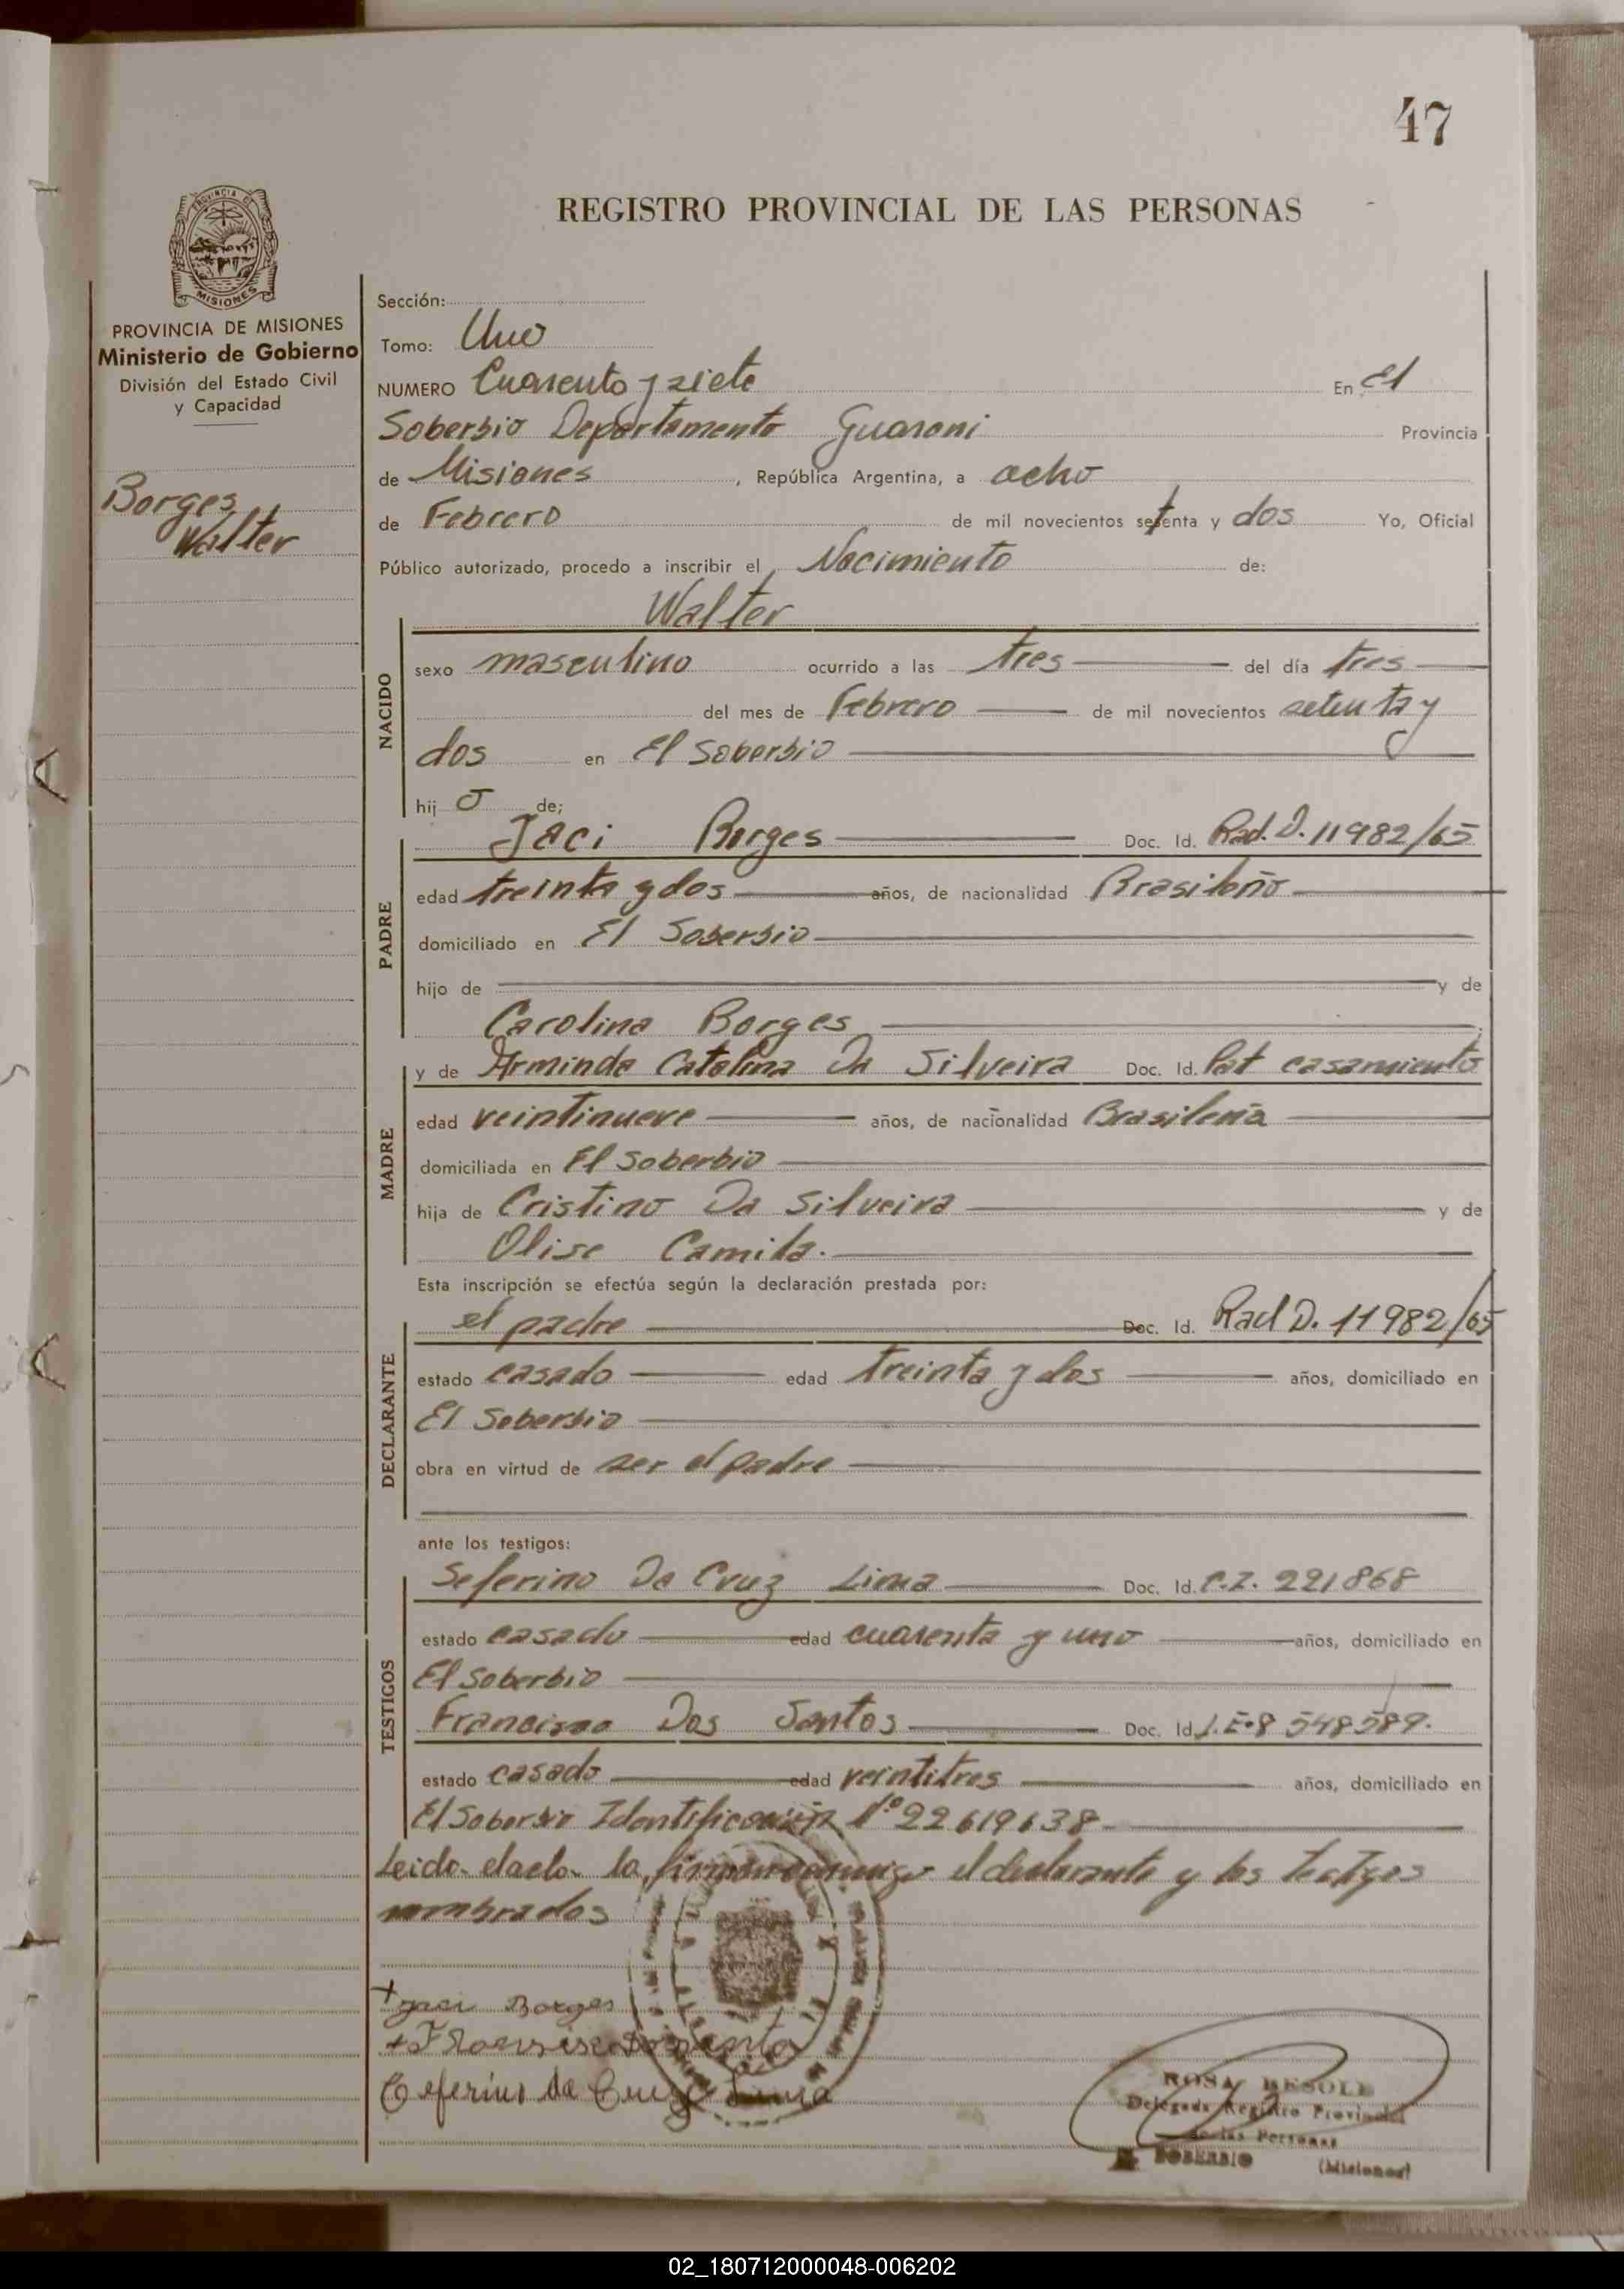 47
PROVINCIA DE
MISIONES
REGISTRO PROVINCIAL DE LAS PERSONAS
PROVINCIA DE MISIONES
Ministerio de Gobierno
División del Estado Civil
y Capacidad
Borges
Walter
Sección:
Tomo: Uno
NUMERO Cuarenta y siete En El
Soberbio Departamento Guarani Provincia
de Misiones, República Argentina, a ocho
de Febrero de mil novecientos setenta y dos Yo, Oficial
Público autorizado, procedo a inscribir el Nacimiento de:
Walter
NACIDO
sexo masculino ocurrido a las tres del día tres
del mes de Febrero de mil novecientos setenta y
dos en El Soberbio
hijo de;
PADRE
Jaci Borges Doc. Id. Rad. D. 11982/65
edad treinta y dos años, de nacionalidad Brasileño
domiciliado en El Soberbio
hijo de y de
Carolina Borges
MADRE
y de Arminda Catalina Da Silveira Doc. Id. Pat casamiento
edad veintinueve años, de nacionalidad Brasileña
domiciliada en El Soberbio
hija de Cristino Da Silveira y de
Olise Camila.
Esta inscripción se efectúa según la declaración prestada por:
DECLARANTE
el padre Doc. Id. Rad D. 11982/65
estado casado edad treinta y dos años, domiciliado en
El Soberbio
obra en virtud de ser el padre
ante los testigos:
TESTIGOS
Seferino Da Cruz Lima Doc. Id. C.I. 221868
estado casado edad cuarenta y uno años, domiciliado en
El Soberbio
Francisco Dos Santos Doc. Id. L.E. 8 548589.
estado casado edad veintitres años, domiciliado en
El Soberbio Identificación Nº 22619638
Leida el acta la firman conmigo el declarante y los testigos
nombrados
+ Jaci Borges
Ceferino da Cruz Lima
ROSA BESOLD
Delegada Registro Provincial
de las Personas
EL SOBERBIO (Misiones)
02_180712000048-006202